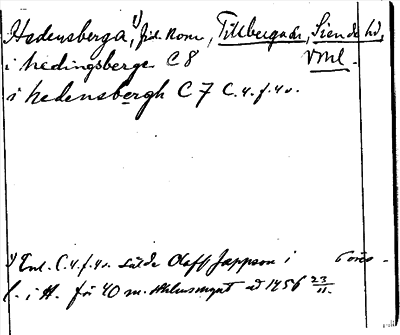 Hedensberga,¹) fid. Kom, Tillberga sn, Siende hd,
i hedingsberge C 8 Vml.
i hedensbergh C 7 C. 4. f. 4 v.
¹) Enl. C. 4. f. 4 v. sålde Olaff Jappson i
l. i H. för 40 m. 1456 23/11.